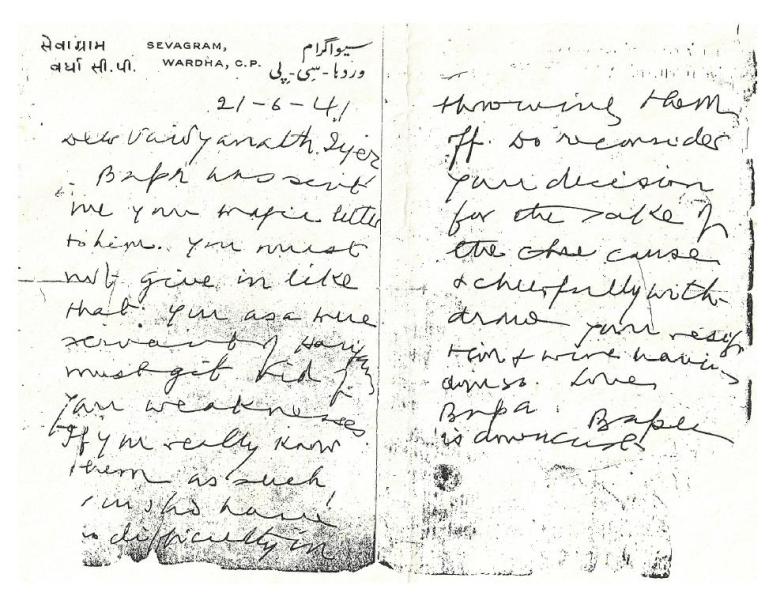 सेवाग्राम SEVAGRAM, سیواگرام
वर्धा सी.पी. WARDHA, C.P. وردہا-سی-پی
21-6-41
Dear Vaidyanath Iyer
Bapa has sent
me your letter
to him. You must
not give in like
that. You as a true
servant of Harijans
must get rid of
your weaknesses
If you really know
them as such
you shd have
difficulty in
throwing them
off. Do reconsider
your decision
for the sake of
the cause
& cheerfully with-
draw your resig
tion & wire having
done so. Love
Bapa Bapu
is downcast